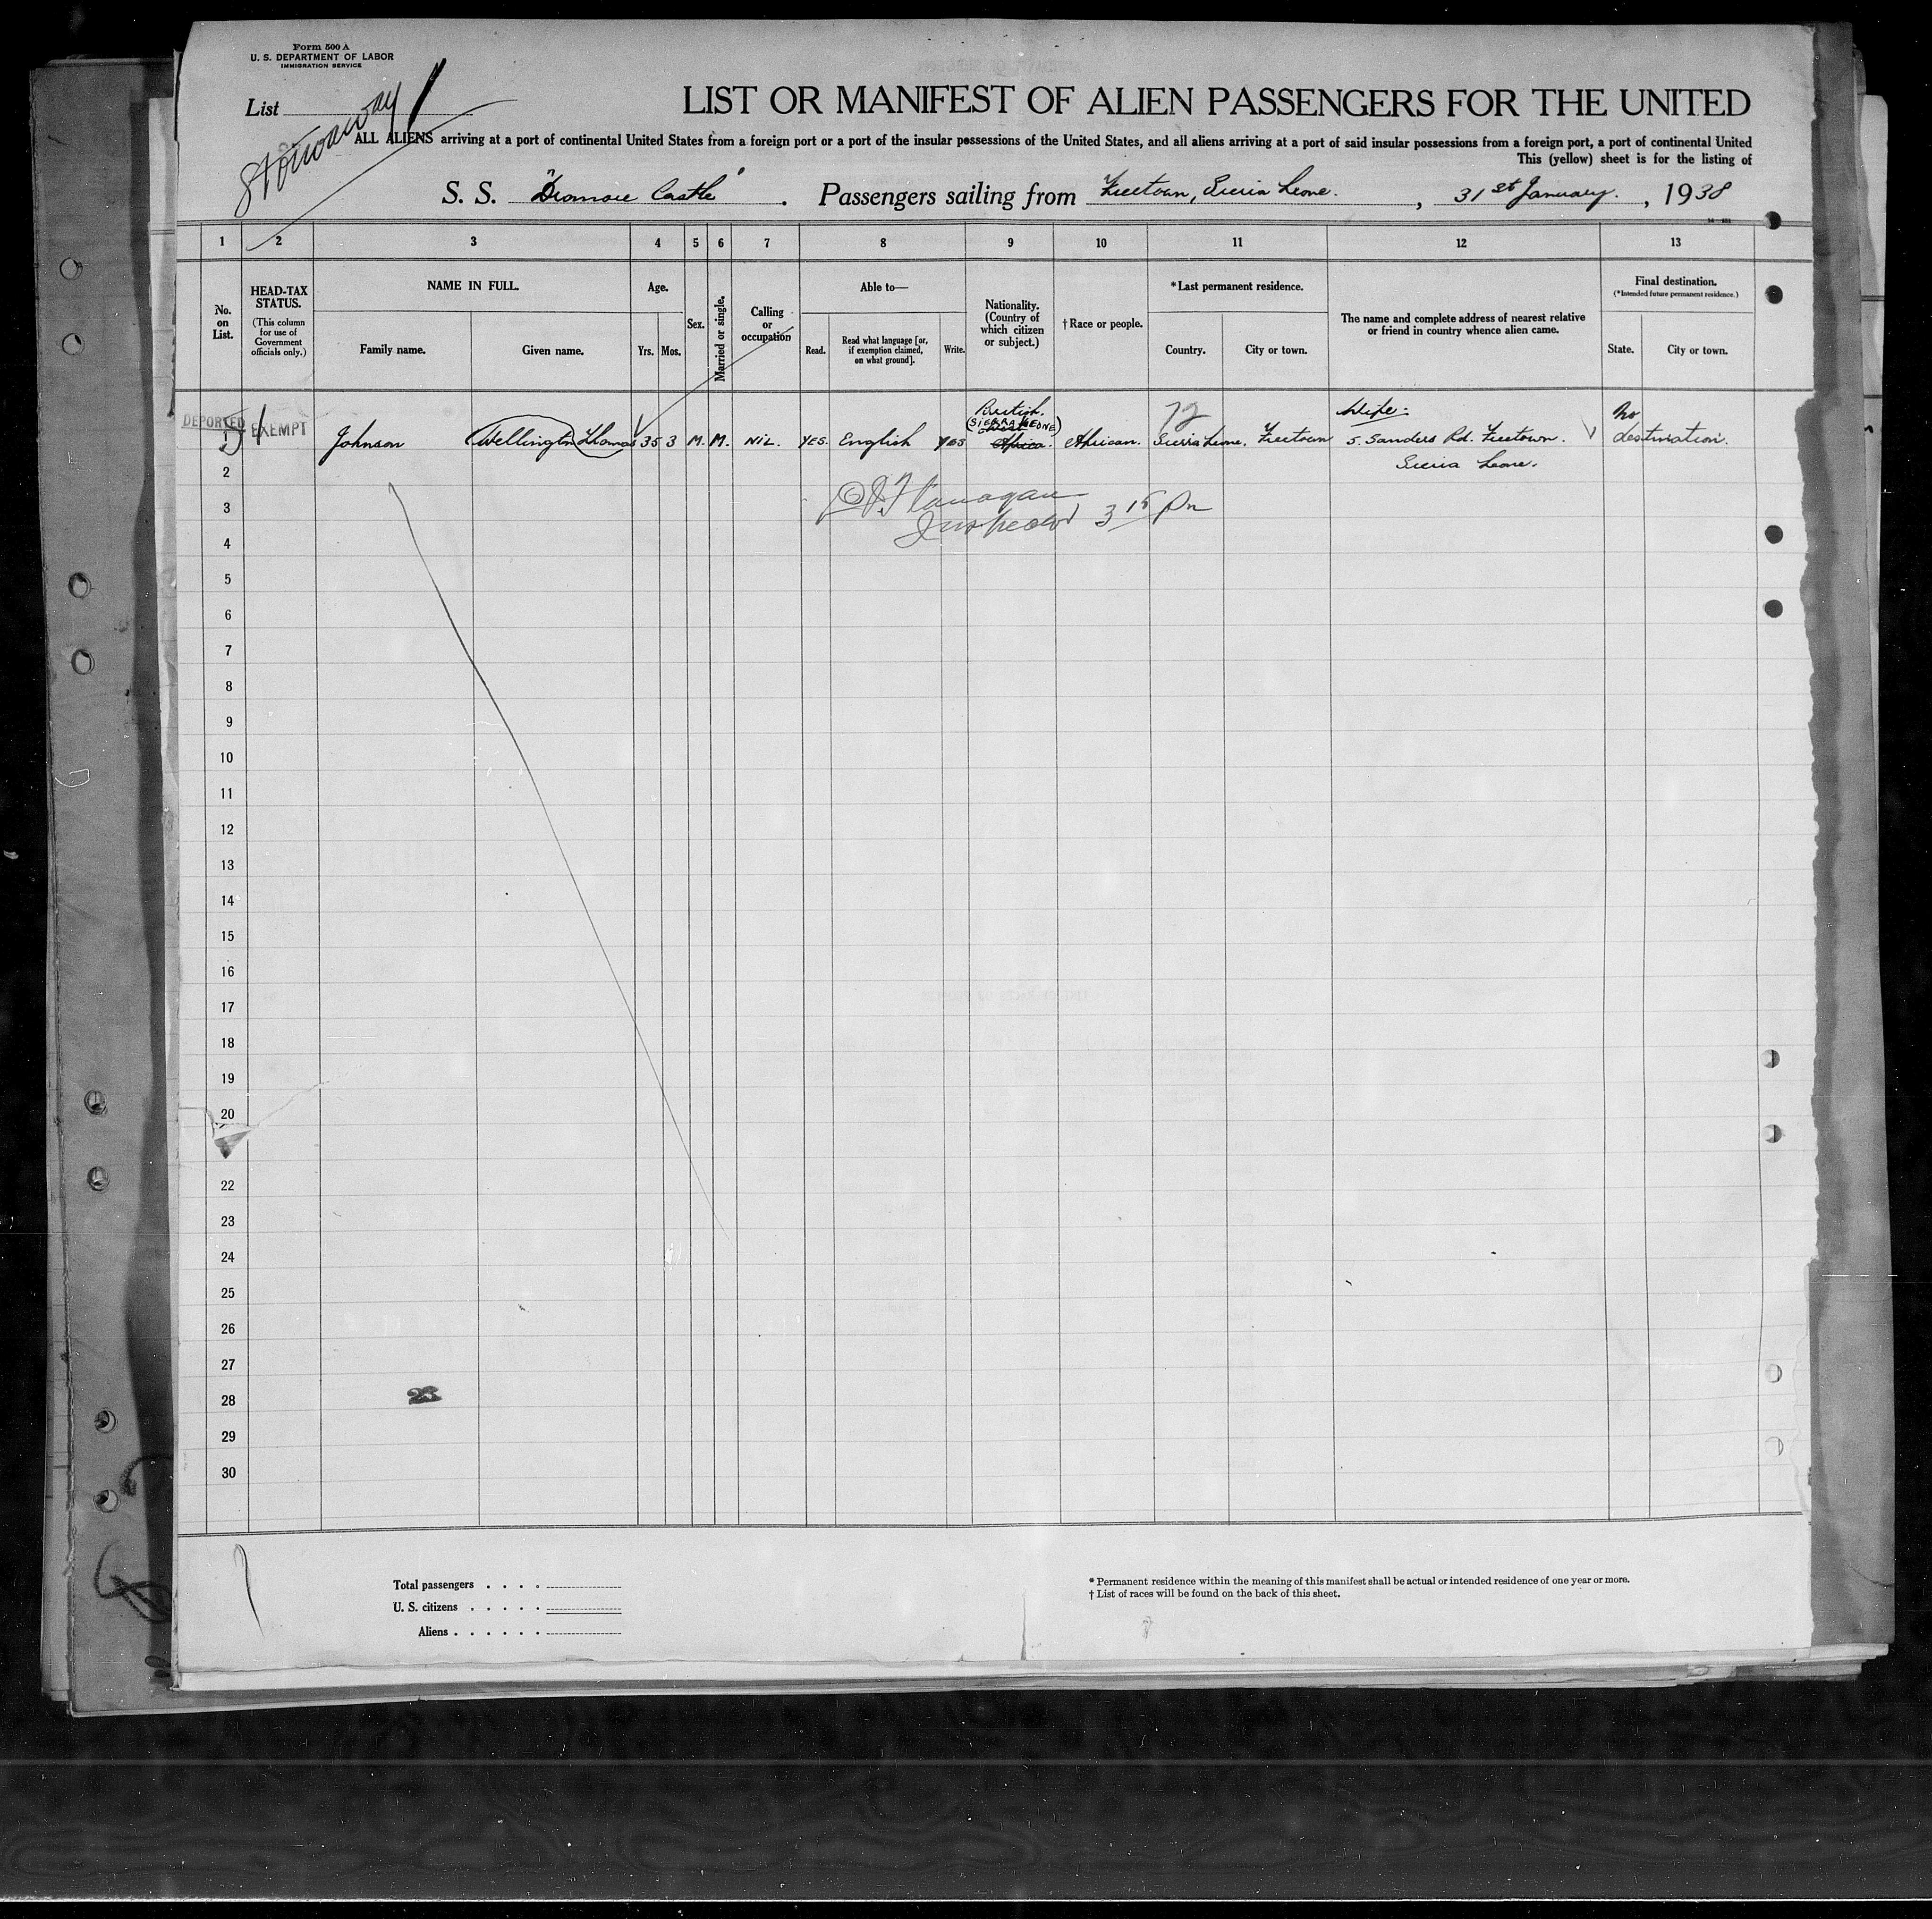 Form 500 A
U. S. DEPARTMENT OF LABOR
IMMIGRATION SERVICE
List
Stowaway
1
LIST OR MANIFEST OF ALIEN PASSENGERS FOR THE UNITED
ALL ALIENS arriving at a port of continental United States from a foreign port or a port of the insular possessions of the United States, and all aliens arriving at a port of said insular possessions from a foreign port, a port of continental United
This (yellow) sheet is for the listing of
S. S. "Dromore Castle". Passengers sailing from Freetown, Sierra Leone. , 31st January. , 1938
1 2 3 4 5 6 7 8 9 10 11 12 13
No. on List.
HEAD-TAX STATUS.
(This column for use of Government officials only.)
NAME IN FULL.
Family name.
Given name.
Age.
Yrs.
Mos.
Sex.
Married or single.
Calling or occupation
Able to—
Read.
Read what language [or, if exemption claimed, on what ground].
Write.
Nationality. (Country of which citizen or subject.)
† Race or people.
* Last permanent residence.
Country.
City or town.
The name and complete address of nearest relative or friend in country whence alien came.
Final destination.
(*Intended future permanent residence.)
State.
City or town.
British. 72 Wife: No
DEPORTED (SIERRA LEONE)
1 EXEMPT Johnson Wellington Thomas 35 3 M. M. NIL. YES. English YES Africa. African. Sierra Leone. Freetown 5. Sanders Rd. Freetown. destination.
2 Sierra Leone.
Flanagan
3 Inspector 3 15 Pm
4
5
6
7
8
9
10
11
12
13
14
15
16
17
18
19
20
22
23
24
25
26
27
28 23
29
30
Total passengers . . . .
U. S. citizens . . . . .
Aliens . . . . . .
* Permanent residence within the meaning of this manifest shall be actual or intended residence of one year or more.
† List of races will be found on the back of this sheet.